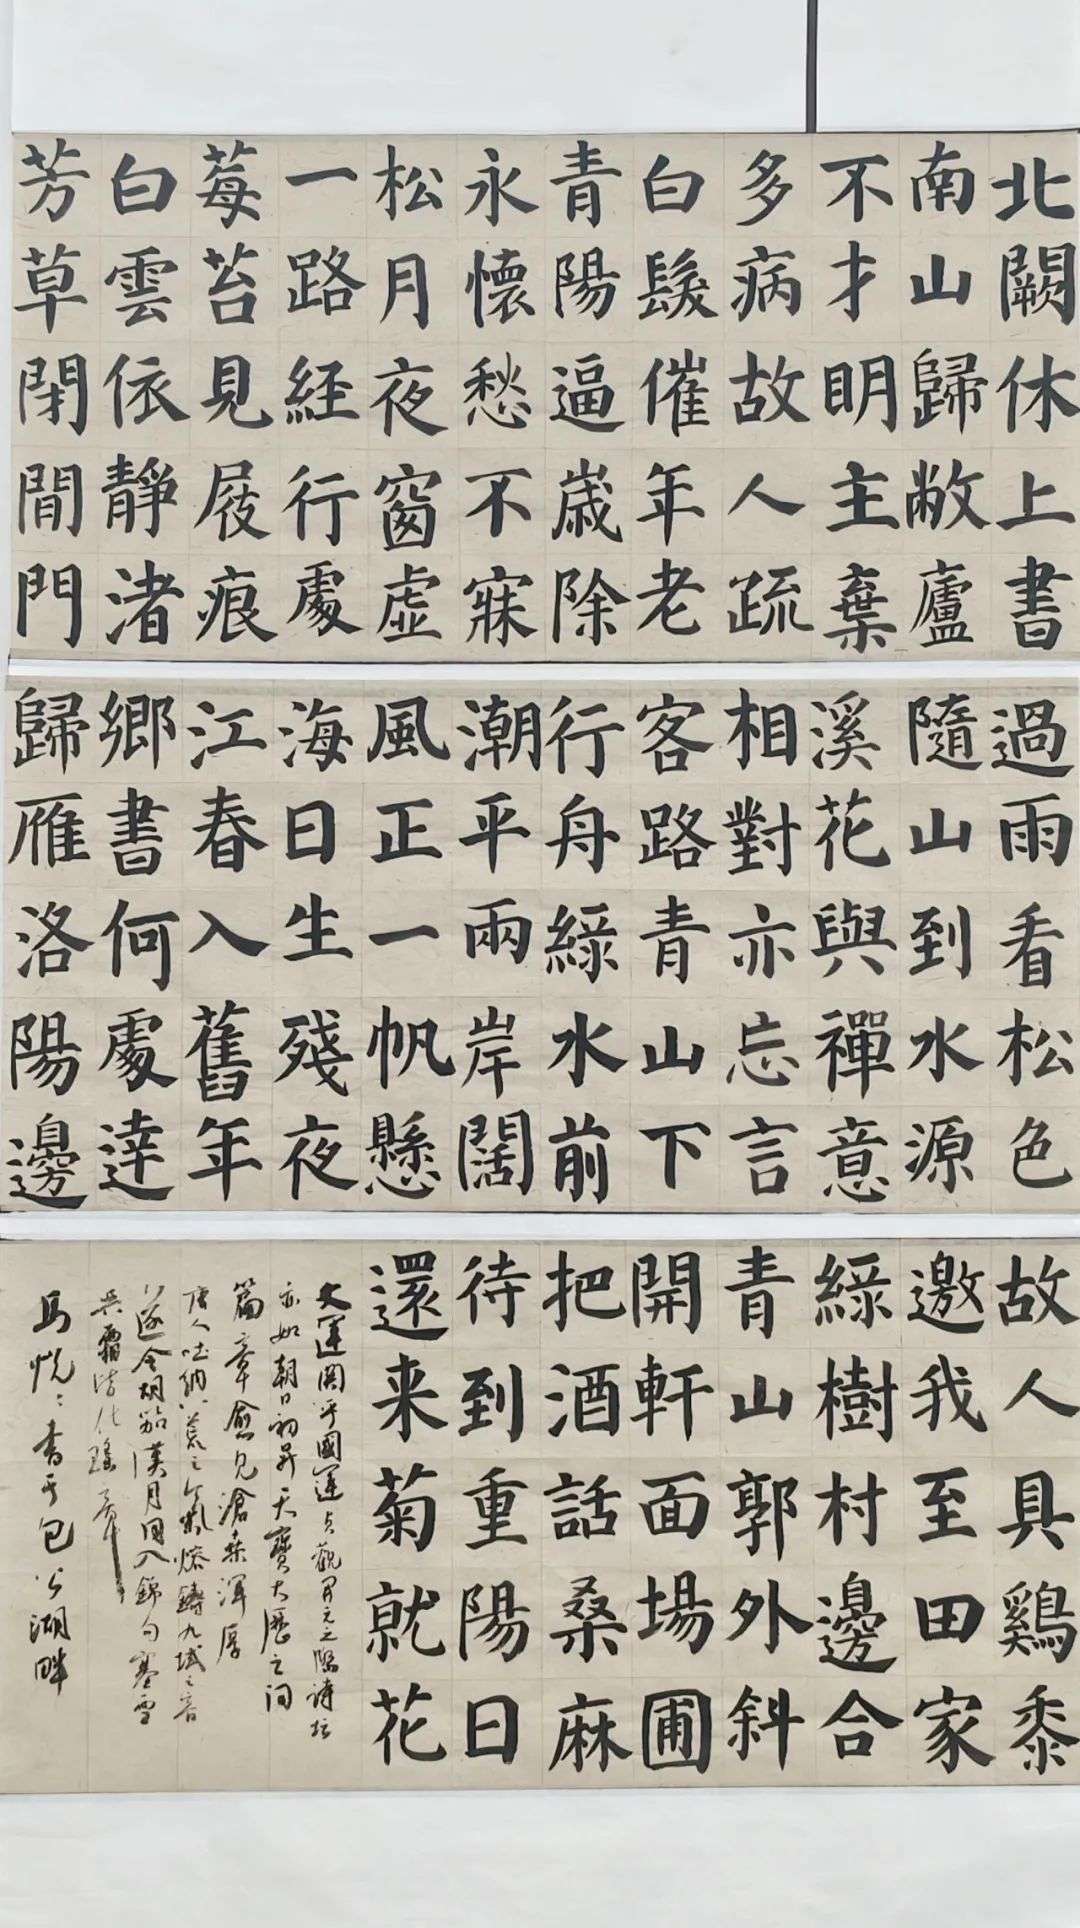 北闕休上書
南山歸敝廬
不才眀主棄
多病故人疏
白髮催年老
青陽逼歲除
永懷愁不寐
松月夜窗虛
一路経行處
莓苔見屐痕
白雲依靜渚
芳草閉閒門
過雨看松色
隨山到水源
溪花與禪意
相對亦忘言
客路青山下
行舟綠水前
潮平兩岸闊
風正一帆懸
海日生殘夜
江春入舊年
鄉書何處達
歸雁洛陽邊
故人具鷄黍
邀我至田家
綠樹村邊合
青山郭外斜
開軒面場圃
把酒話桑麻
待到重陽日
還来菊就花
文運関乎國運貞觀開元之際詩坛
亦如朝日初昇天寶大歷之间
篇章愈見滄桑渾厚
唐人吐納八荒之氣熔鑄九域之音
遂令胡笳漢月同入錦句塞雪
吴霜皆化瑤章
馬悦〻書于包公湖畔